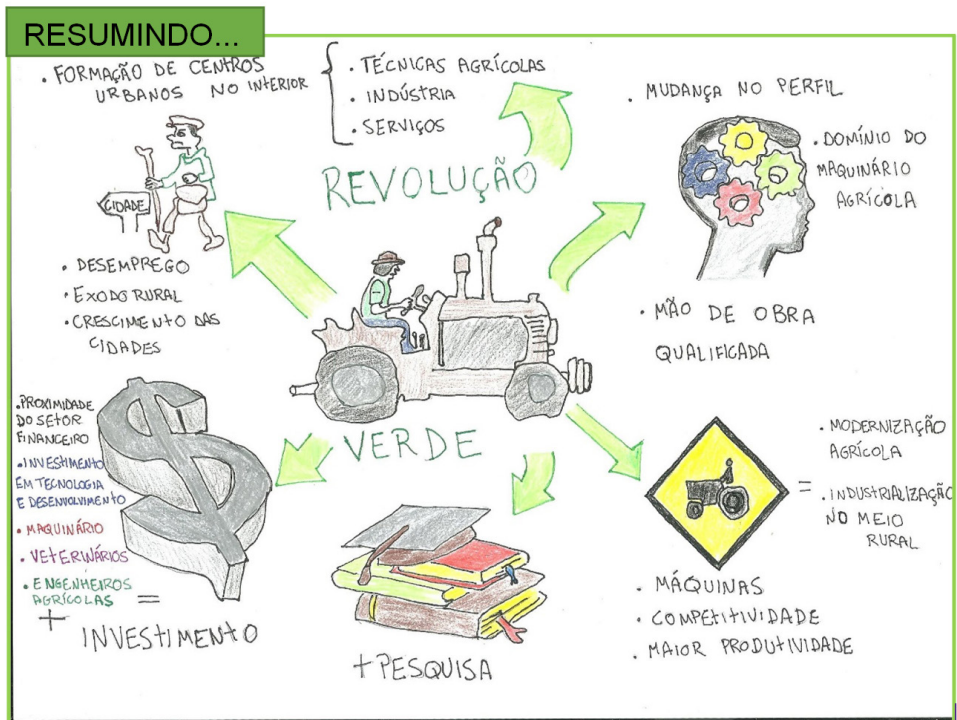 RESUMINDO...
. FORMAÇÃO DE CENTROS
URBANOS NO INTERIOR
. TÉCNICAS AGRÍCOLAS
. INDÚSTRIA
. SERVIÇOS
REVOLUÇÃO
VERDE
CIDADE
. DESEMPREGO
. EXODO RURAL
. CRESCIMENTO DAS
CIDADES
. MUDANÇA NO PERFIL
. DOMÍNIO DO
MAQUINÁRIO
AGRÍCOLA
. MÃO DE OBRA
QUALIFICADA
. PROXIMIDADE
DO SETOR
FINANCEIRO
. INVESTIMENTO
EM TECNOLOGIA
E DESENVOLVIMENTO
. MAQUINÁRIO
. VETERINÁRIOS
. ENGENHEIROS
AGRÍCOLAS =
+ INVESTIMENTO
+ PESQUISA
. MODERNIZAÇÃO
AGRÍCOLA
= . INDUSTRIALIZAÇÃO
NO MEIO
RURAL
. MÁQUINAS
. COMPETITIVIDADE
. MAIOR PRODUTIVIDADE